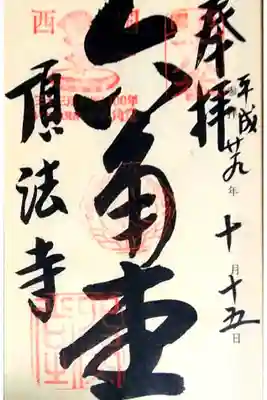 奉拝
平成廿九年十月十五日
六角堂
頂法寺